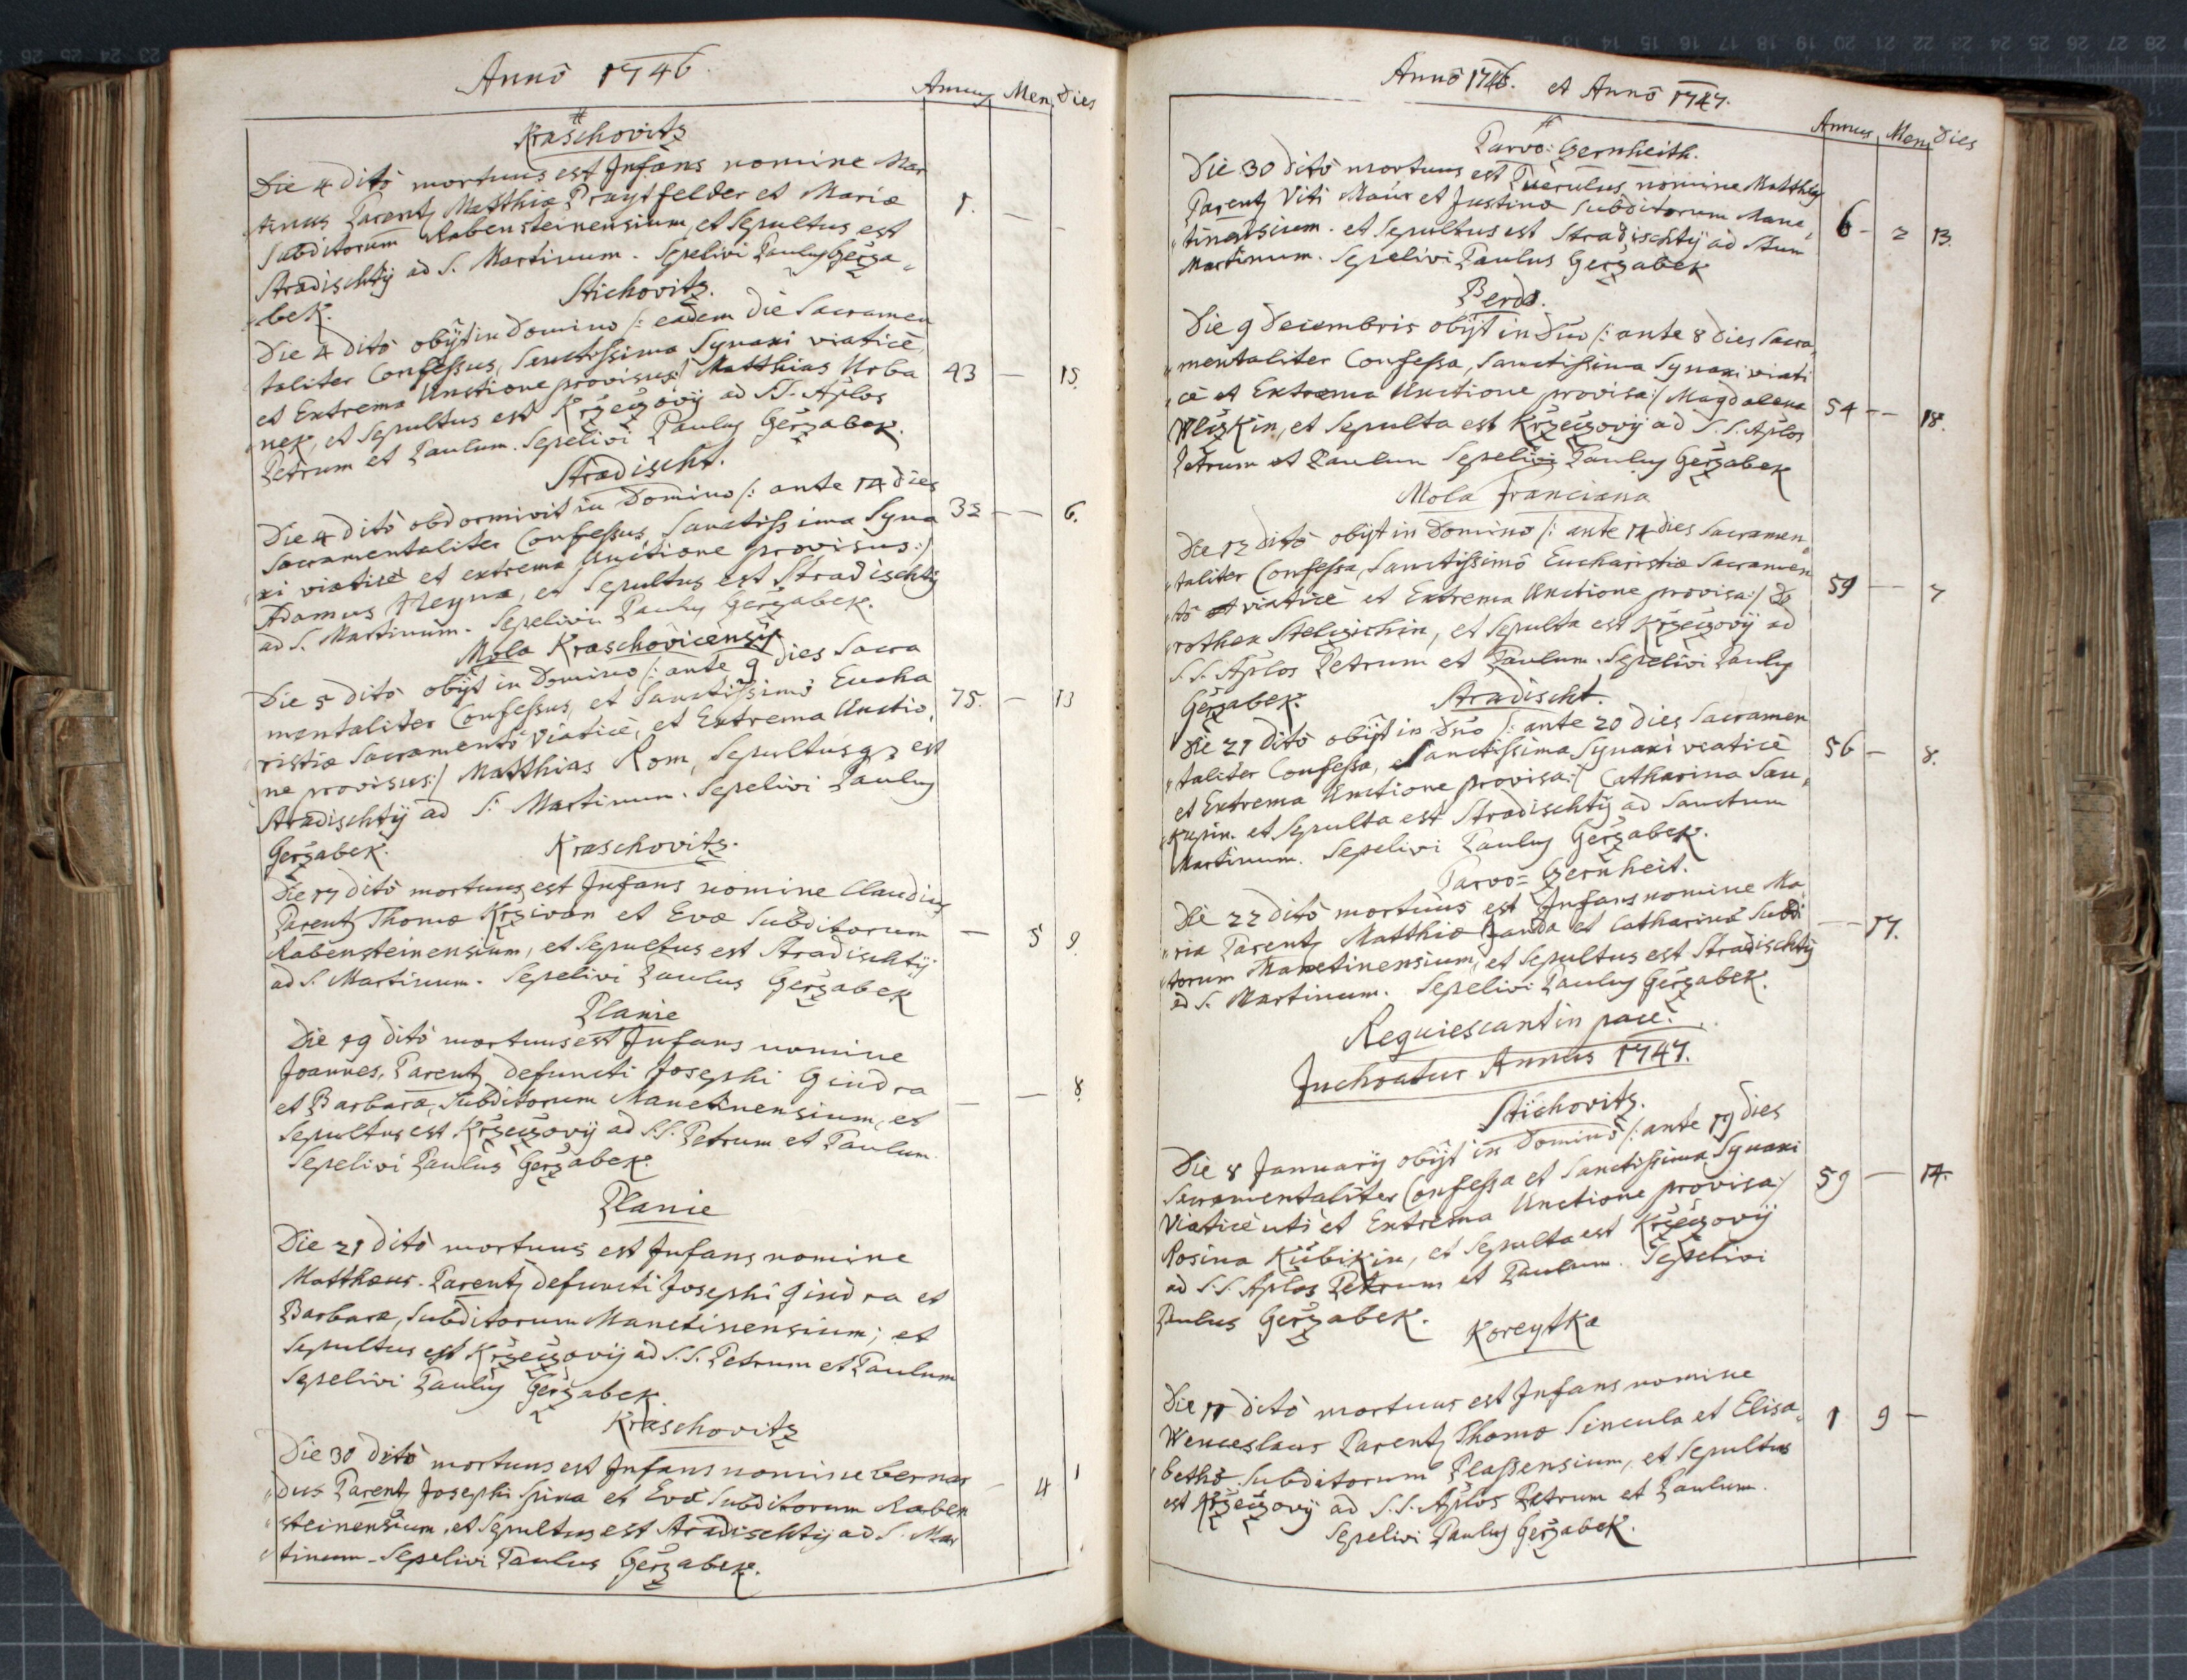 Anno 1746.
Annus Men. Dies
Kraschovitz
Die 4 dito mortuus est Infans nomine Mar
tinus Parent. Matthiæ Praytfelder et Mariæ 1. — —
Subditorum Rabensteinensium, et Sepultus est
Stradischtÿ ad S. Martinum. Sepelivi Paulus Gerza„
„bek.
Stichovitz.
Die 4 dito obÿt in Domino /: eadem die Sacramen
taliter Confessus, Sanctissima Synaxi viaticè,
et Extrema Unctione provisus:/ Matthias Urba 43 — 15.
„nek, et Sepultus est Krzeczovÿ ad SS. Aplos
Petrum et Paulum. Sepelivi Paulus Gerzabek.
Stradischt.
Die 4 dito obdormivit in Domino /: ante 14 dies 32 — — 6.
Sacramentaliter Confessus, Sanctissima Syna
„xi viaticè et extrema Unctione provisus:/
Adamus Heyna, et Sepultus est Stradischtÿ
ad S. Martinum. Sepelivi Paulus Gerzabek.
Mola Kraschovicensis
Die 5 dito obÿt in Domino /: ante 9 dies Sacra
mentaliter Confessus, et Sanctissimo Eucha 75. — 13
ristiæ Sacramento viaticè, et Extrema Unctio„
ne provisus:/ Matthias Rom, Sepultusq3 est
Stradischtÿ ad S. Martinum. Sepelivi Paulus
Gerzabek.
Kraschovitz.
Die 17 dito mortuus est Infans nomine Claudius
Parent. Thomæ Krziwan et Evæ Subditorum — 5 9.
Rabensteinensium, et Sepultus est Stradischtÿ
ad S. Martinum. Sepelivi Paulus Gerzabek
Planie
Die 19 dito mortuus est Infans nomine
Joannes, Parent. defuncti Josephi Gindra
et Barbaræ, Subditorum Manetinensium, et — — 8.
Sepultus est Krzeczovÿ ad S.S. Petrum et Paulum
Sepelivi Paulus Gerzabek.
Planie
Die 21 dito mortuus est Infans nomine
Matthæus. Parent. defuncti Josephi Gindra et
Barbaræ, Subditorum Manetinensium; et
Sepultus est Krzeczovÿ ad S.S. Petrum et Paulum
Sepelivi Paulus Gerzabek.
Kraschovitz
Die 30 dito mortuus est Infans nomine bernar
„dus Parent. Josephi et Evæ Subditorum Raben — 4 1
„steinensium, et Sepultus est Stradischtÿ ad S. Mar
„tinum. Sepelivi Paulus Gerzabek.
Anno 1746. et Anno 1747.
Annus Men. Dies
Parvo: Gernheith.
Die 30 dito mortuus est Puerulus nomine Matthias
Parent. Viti Maur et Justinæ Subditorum Mane„ 6 — 2 13.
„tinensium. et Sepultus est Stradischtÿ ad Stum
Martinum. Sepelivi Paulus Gerzabek
Berd.
Die 9 Decembris obÿt in Dno /: ante 8 dies Sacra„
„mentaliter Confessa, Sanctissima Synaxi viati
„cè et Extrema Unctione provisa:/ Magdalena 54 — — 18.
Wlizkin, et Sepulta est Krzeczovÿ ad S.S. Aplos
Petrum et Paulum Sepelivi Paulus Gerzabek
Mola Franciana
Die 12 dito obÿt in Domino /: ante 14 dies Sacramen„
„taliter Confessa, Sanctissimo Eucharistiæ Sacramen
„to viaticè et Extrema Unctione provisa:/ Do 59 — — 7
„rothea Stelzichin, et Sepulta est Krzeczovÿ ad
S.S. Aplos Petrum et Paulum. Sepelivi Paulus
Gerzabek.
Stradischt.
Die 21 dito obÿt in Dno /: ante 20 dies Sacramen
„taliter Confessa, Sanctissima Synaxi viaticè 56 — 8.
et Extrema Unctione provisa:/ Catharina Sau„
„kupin. et Sepulta est Stradischtÿ ad Sanctum
Martinum. Sepelivi Paulus Gerzabek.
Parvo= Gernheit.
Die 22 dito mortuus est Infans nomine Ma„
„ria Parent. Matthiæ Janda et Catharinæ Subdi — 17.
„torum Manetinensium, et Sepultus est Stradischtÿ
ad S. Martinum. Sepelivi Paulus Gerzabek.
Requiescant in pace.
Inchoatur Annus 1747.
Stichovitz.
Die 8 Januarÿ obÿt in Domino /: ante 19 dies
Sacramentaliter Confessa et Sanctissima Synaxi
Viaticè uti et Extrema Unctione provisa:/ 59 — 14.
Rosina Kubikin, et Sepulta est Krzeczovÿ
ad S.S. Aplos Petrum et Paulum. Sepelivi
Paulus Gerzabek.
Koreytka
Die 11 dito mortuus est Infans nomine
Wenceslaus Parent. Thomæ Sincula et Elisa„ 1 9 —
„bethæ Subditorum Plassensium, et Sepultus
est Krzeczovÿ ad S.S. Aplos Petrum et Paulum.
Sepelivi Paulus Gerzabek.